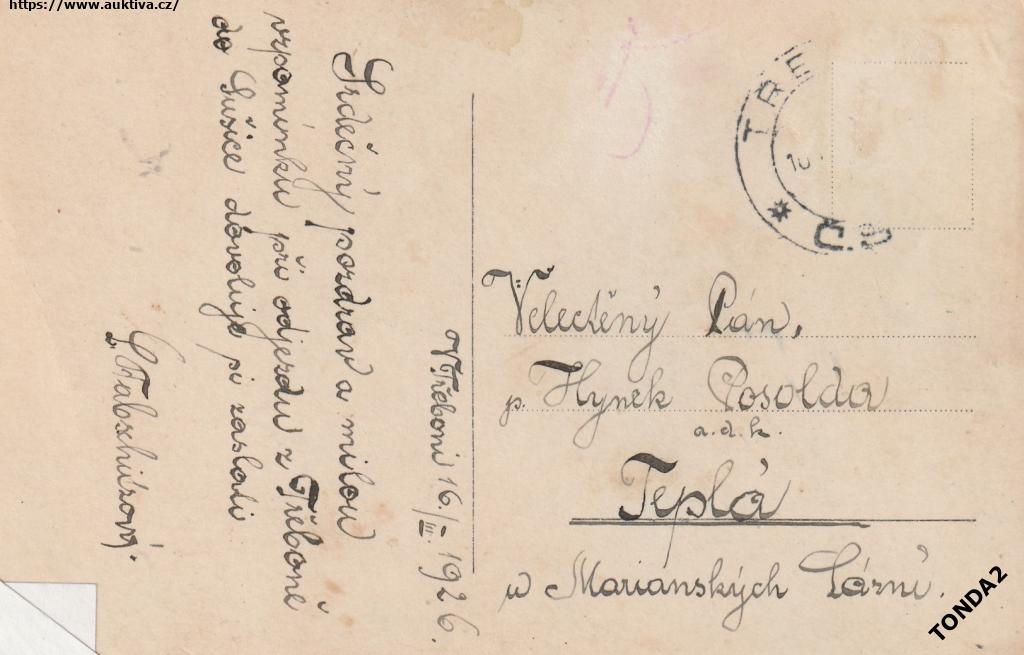 https://www.auktiva.cz/
V Třeboni 16./III. 1926.
Srdečný pozdrav a milou
vzpomínku při odjezdu z Třeboně
do Sušice dovoluje si zaslati
TŘE
Č.S
Velectěný Pán,
p. Hynek Posolda
a.d.k.
Teplá
u Mariánských Lázní.
TONDA2